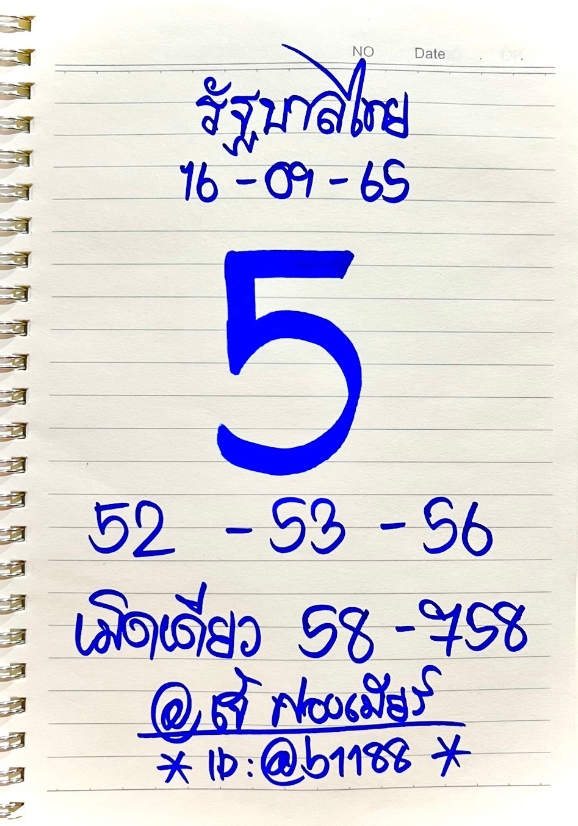 NO Date
รัฐบาลไทย
16 - 09 - 65
5
52 - 53 - 56
เม็ดเดียว 58 - 758
* ID : @b1188 *